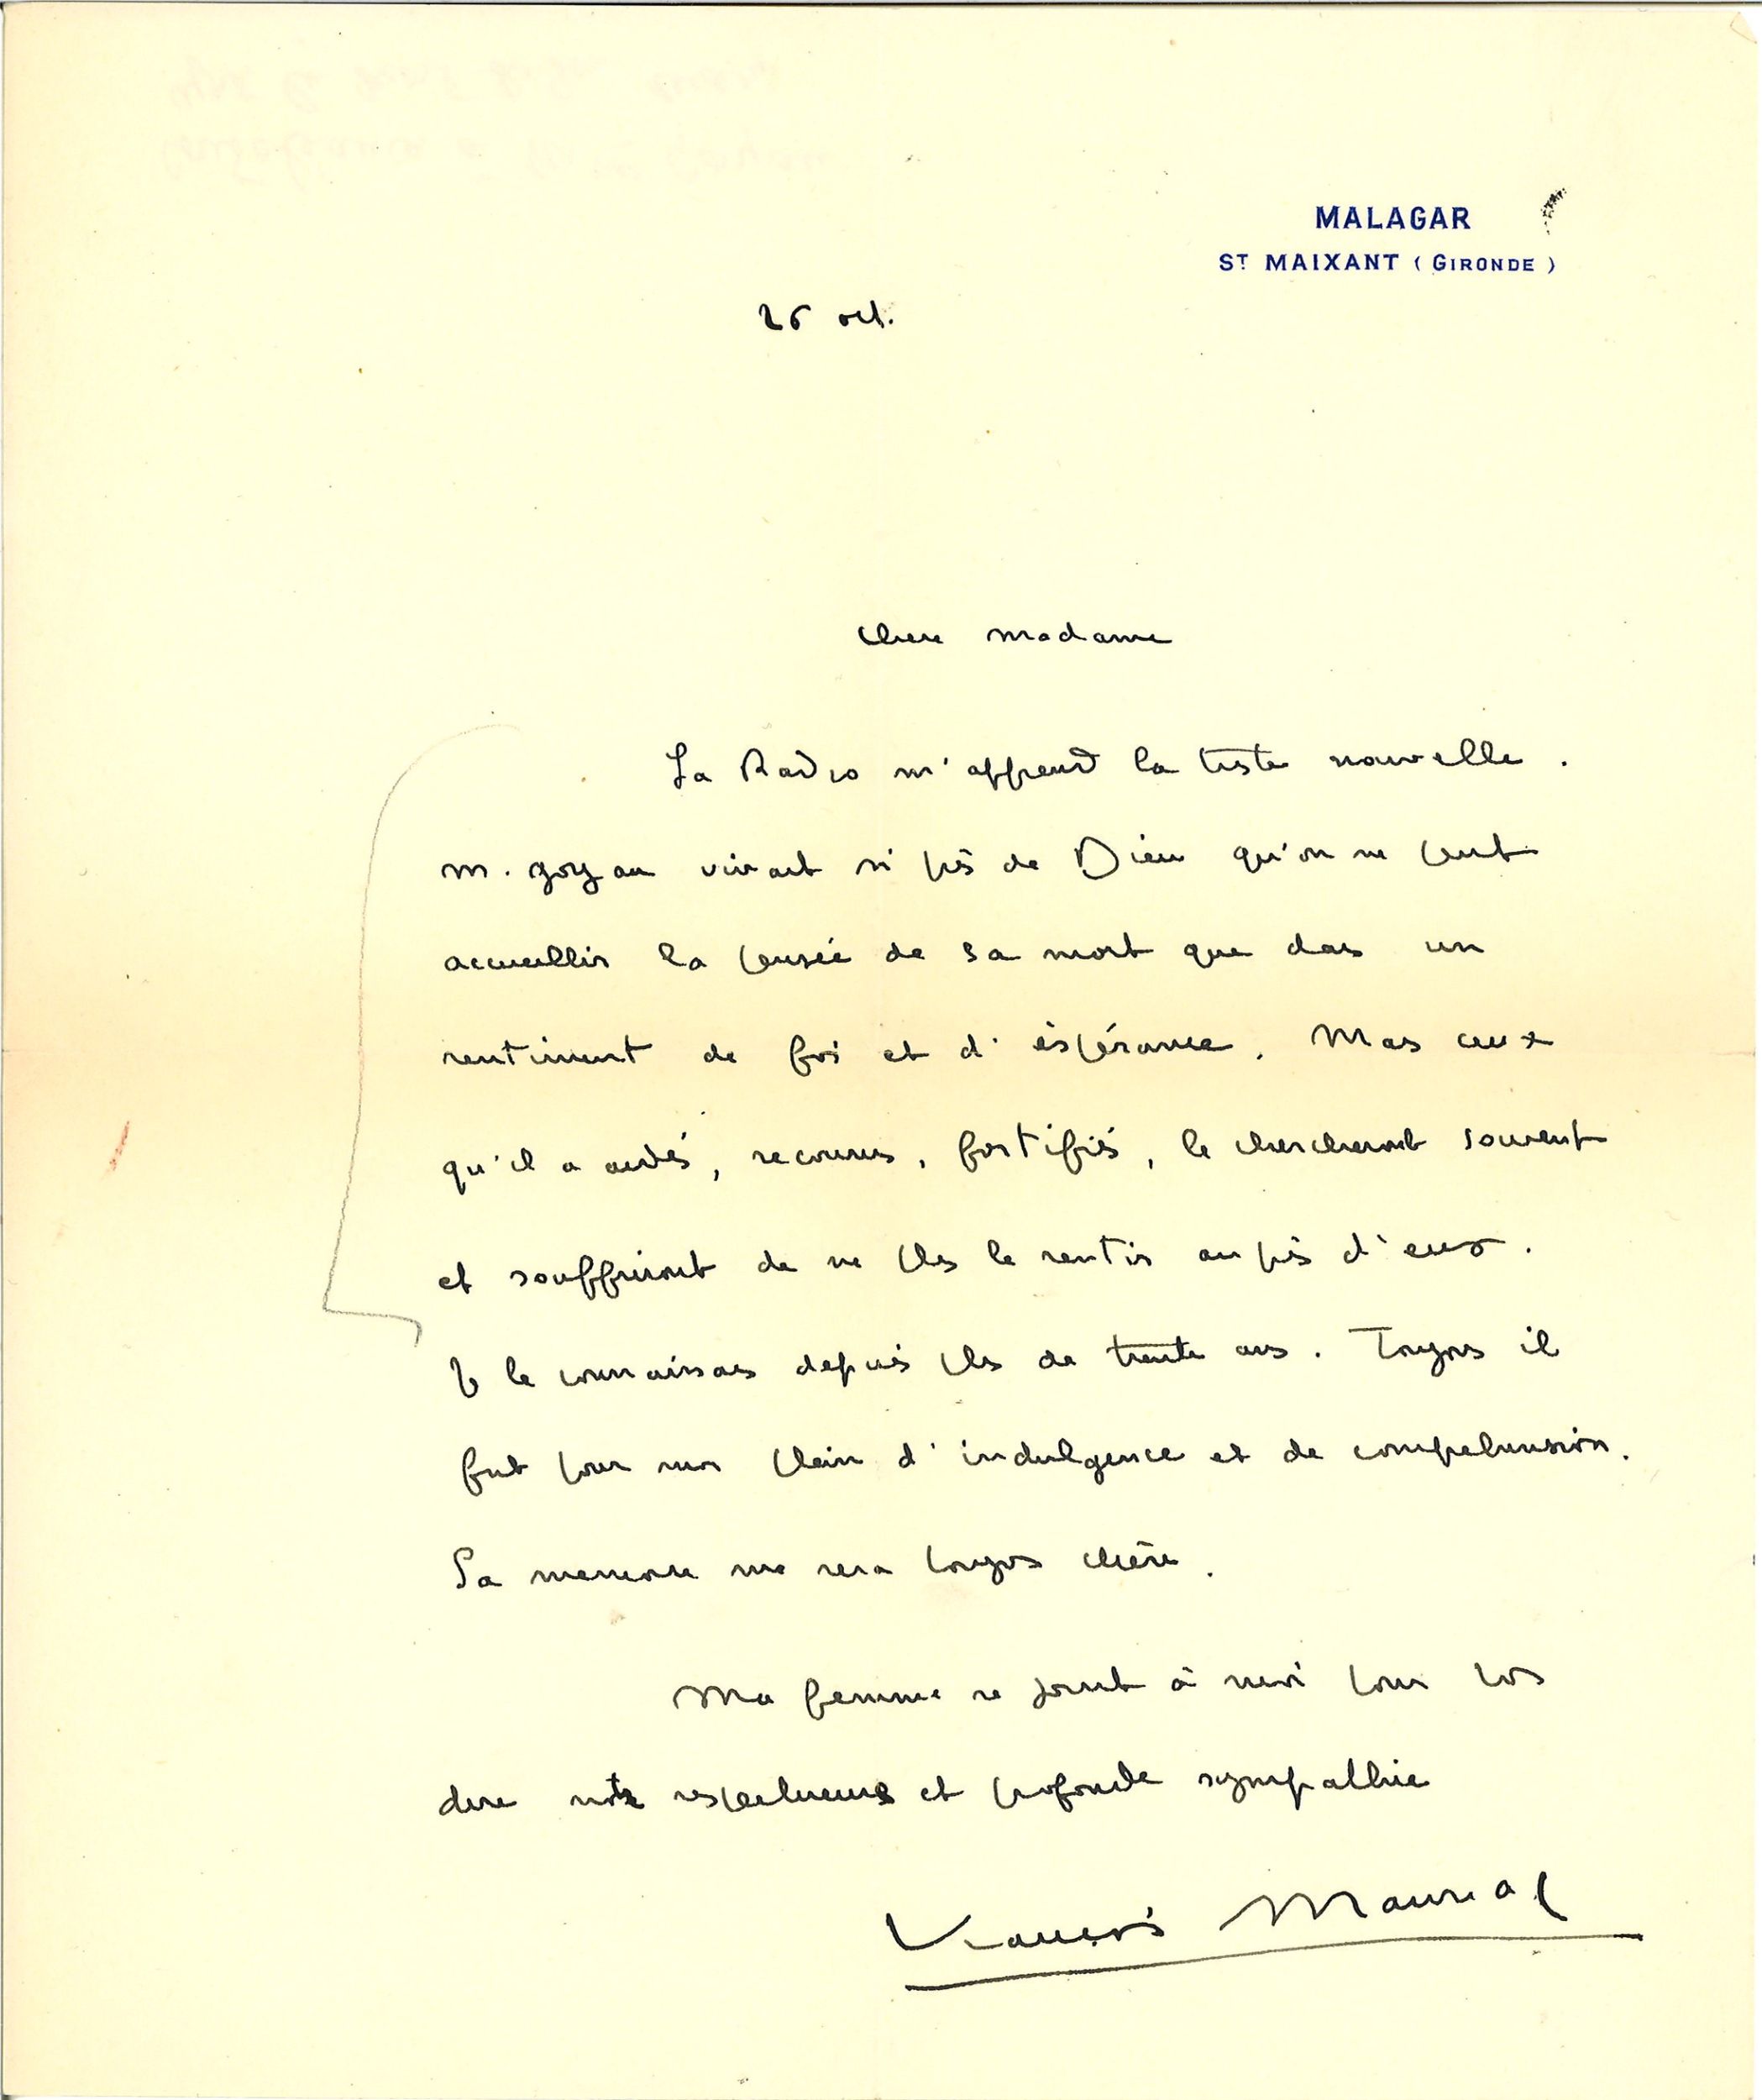 MALAGAR
ST MAIXANT (GIRONDE)
26 oct.
Chère Madame
La Radio m'apprend la triste nouvelle.
M. Goyau vivait si près de Dieu qu'on ne peut
accueillir la pensée de sa mort que dans un
sentiment de foi et d'espérance. Mais ceux
qu'il a aidés, secourus, fortifiés, le chercheront souvent
et souffriront de ne plus le sentir auprès d'eux.
Je le connaissais depuis plus de trente ans. Toujours il
fut pour moi plein d'indulgence et de compréhension.
Sa mémoire me sera toujours chère.
Ma femme se joint à moi pour vous
dire notre respectueuse et profonde sympathie
François Mauriac